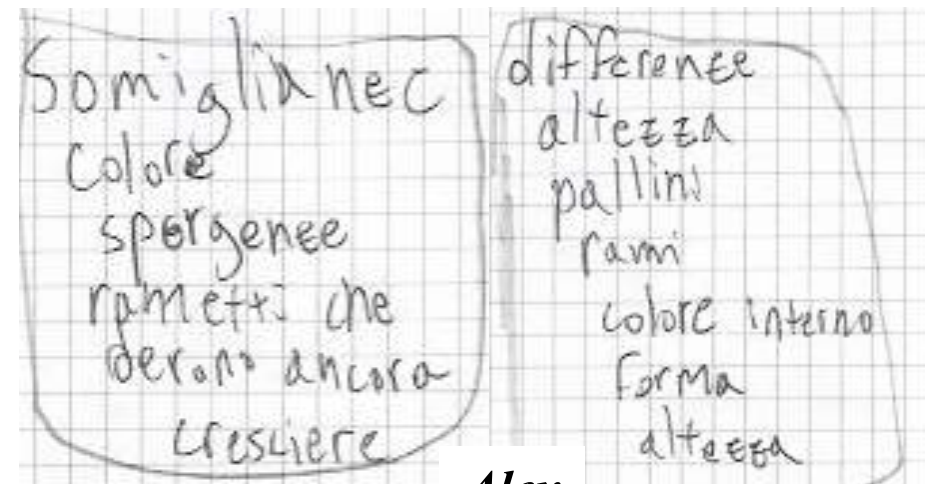 Somiglianze
colore
sporgenze
rametti che
devono ancora
cresciere
differenze
altezza
pallini
rami
colore interno
forma
altezza
Alex